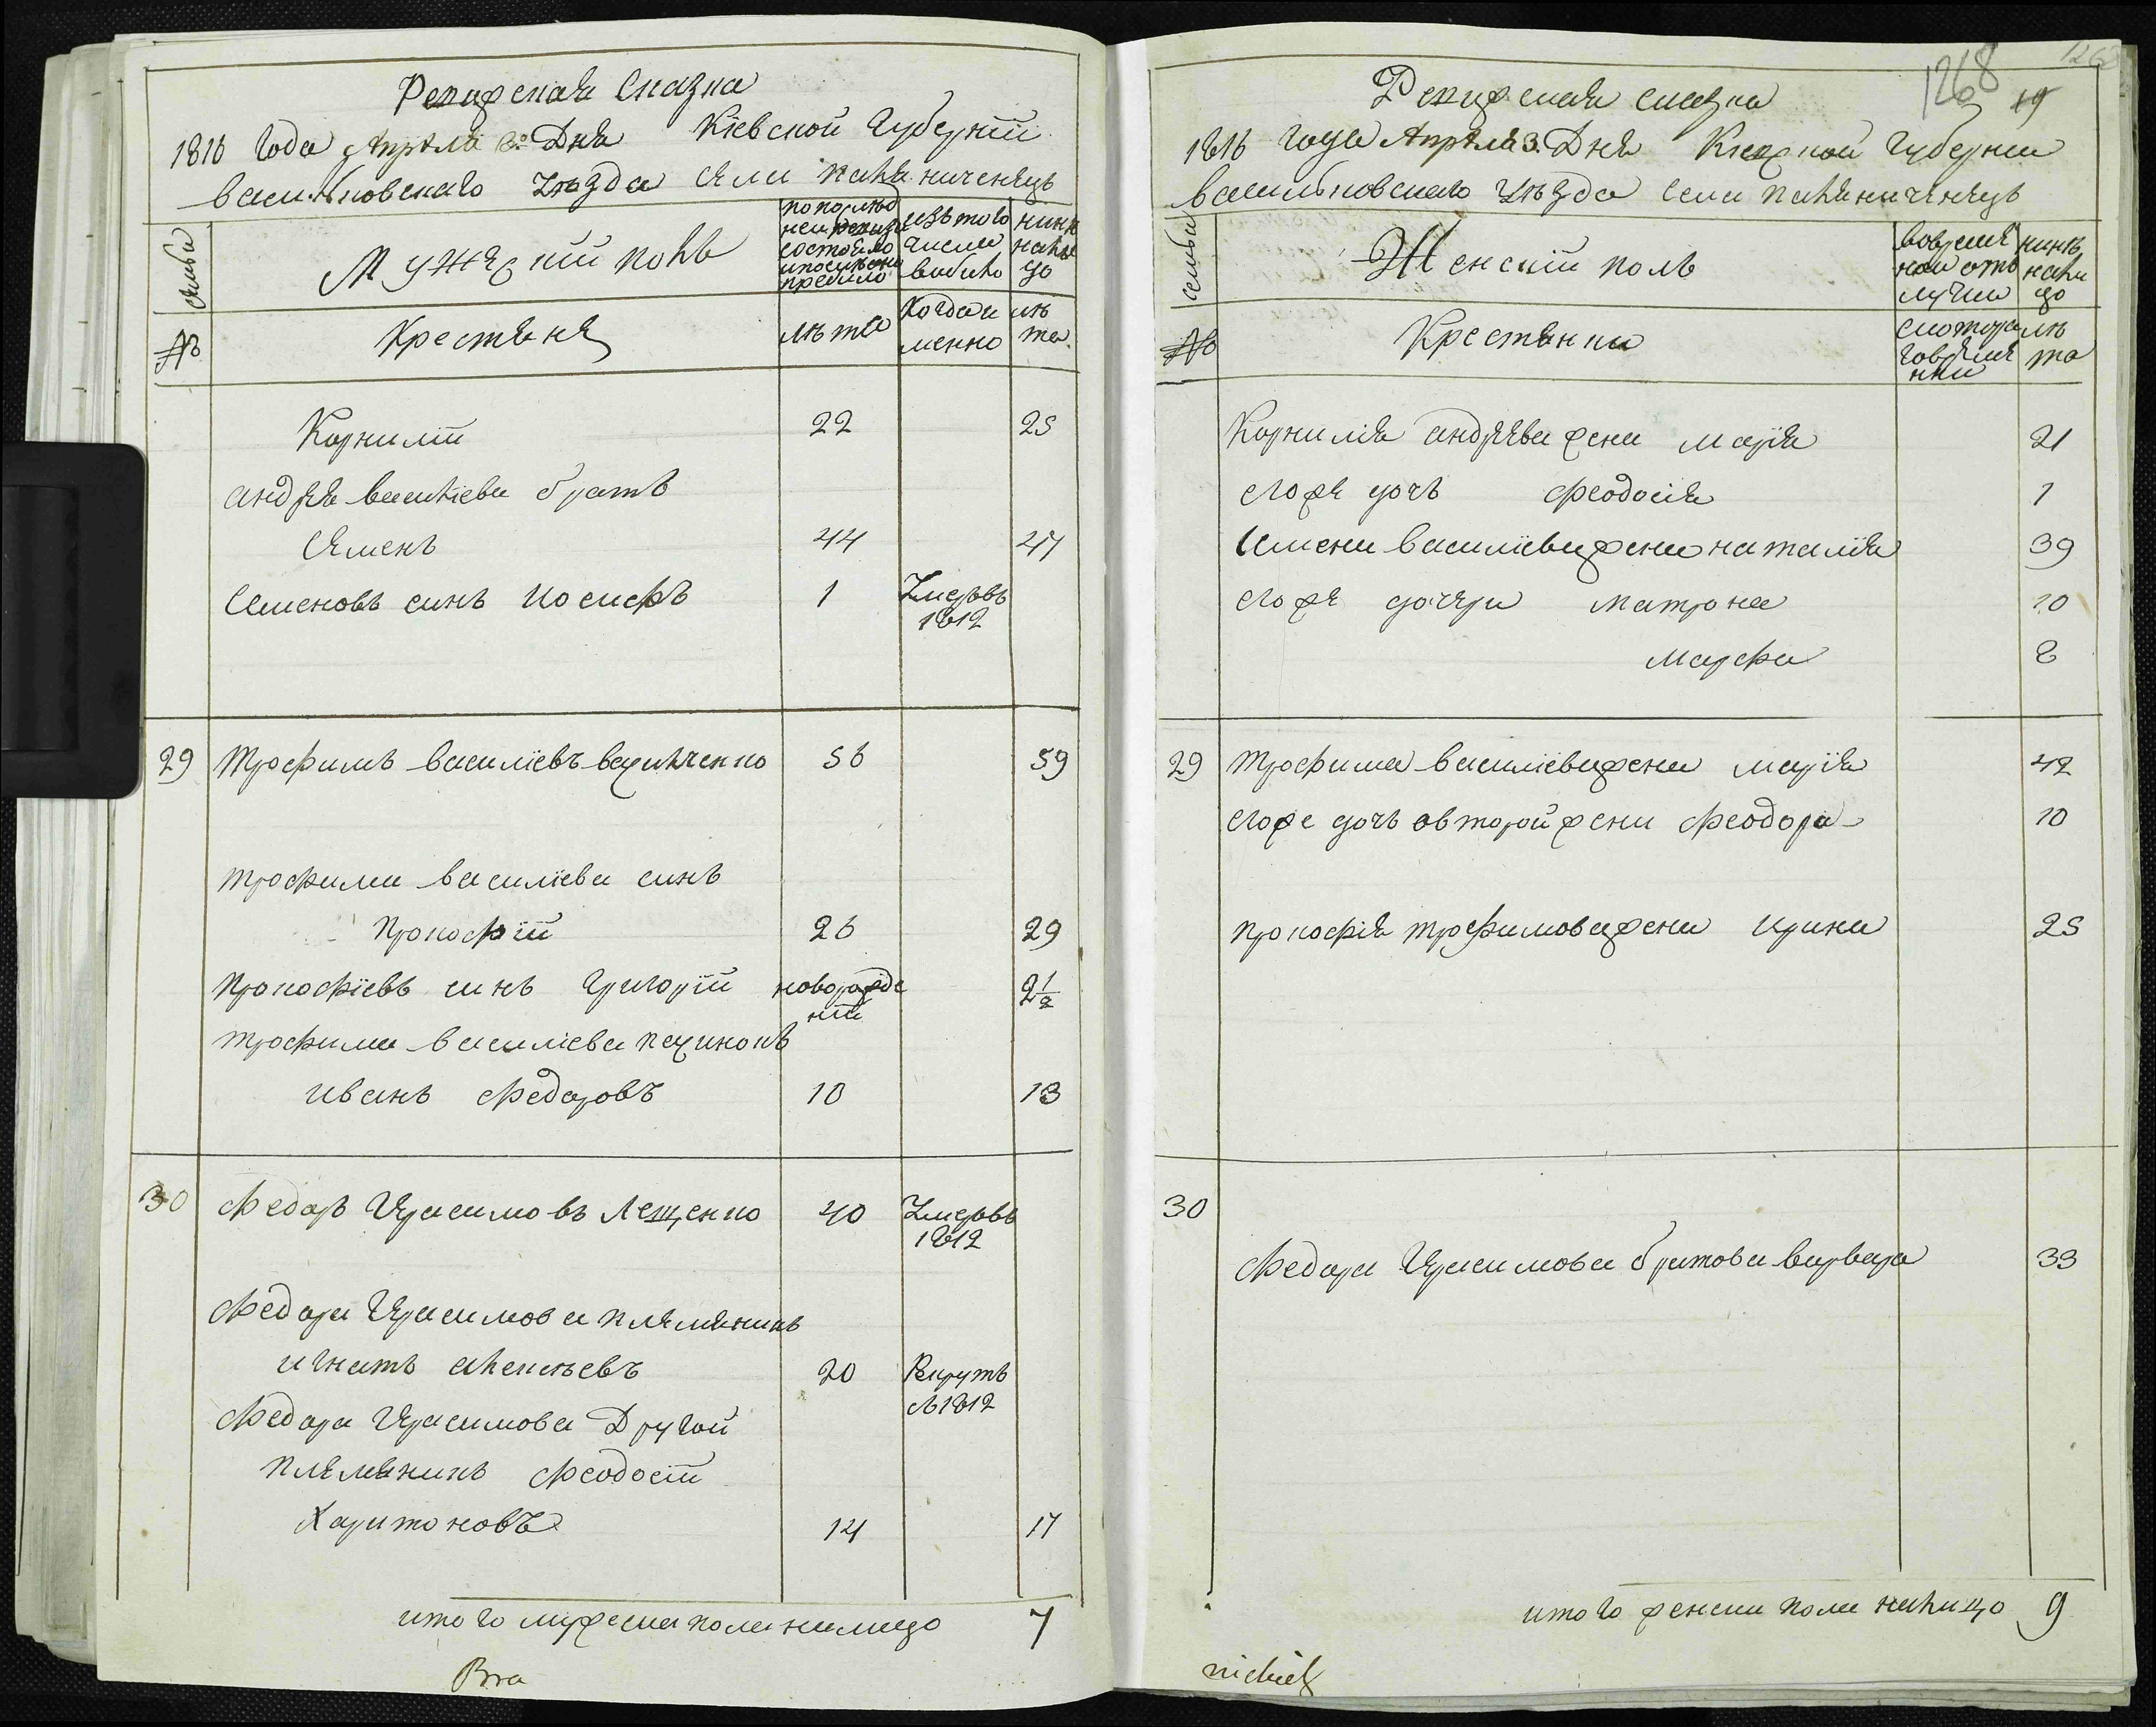 Ревизская Сказка
1816 Года Апреля 3º Дня Кіевской Губерніи
васильковскаго уезда Села
семьи
Мужескій полъ
по последней ревизіи состояло и после оной прибило
изъ того числа выбило
нине налицо
№
Крестяне
лета
Когда именно
лета
Корнилій 22 25
андрея василіева братъ
Семенъ 44 47
Семеновъ синъ Иосифъ 1 Умеръвъ 1812
29 Трофимъ василіевъ 56 59
трофима василіева синъ
Прокофій 26 29
Прокофіевъ синъ Григорій новорожденій 2 1/2
трофима василіева пасинокъ
иванъ Федоровъ 10 13
30 Федоръ Герасимовъ Лещенко 40 Умеръвъ 1812
Федора Герасимова племяникъ
игнатъ алексеевъ 20 Рекрутъ в 1812
Федора Герасимова Другой
племяникъ Феодосій
Харитоновъ 14 17
итого мужеска пола налицо 7
Bra
1268
19
Ревизская сказка
1816 года Апреля 3. Дня Киевской Губернии
васильковскаго уезда села
семьи
Женскій полъ
во временной отлучки
нине налицо
№
Крестянки
с котораго времени
лета
Корнилія андреева жена марія 21
его же дочь феодосія 1
Семена василіева жена наталія 39
его же дочери матрона 10
марфа 8
29 Трофима василіева жена марія 42
его же дочь овторой жени Феодора 10
прокофія трофимова жена ирина 25
30
Федора Герасимова братова варвара 33
итого женска пола налицо 9
nickich